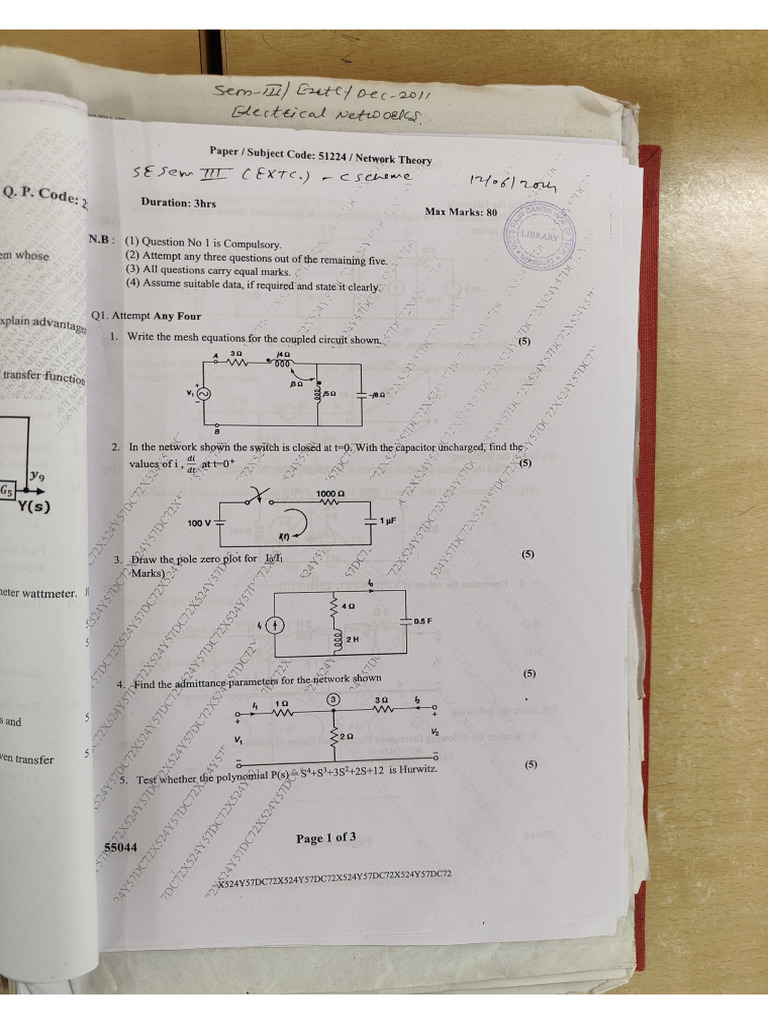 Sem-III/ Extc/ Dec-2011
Electrical Networks.
Paper / Subject Code: 51224 / Network Theory
SE Sem III (EXTC.) - C Scheme 12/06/2024
Duration: 3hrs
Max Marks: 80
LIBRARY
N.B : (1) Question No 1 is Compulsory.
(2) Attempt any three questions out of the remaining five.
(3) All questions carry equal marks.
(4) Assume suitable data, if required and state it clearly.
Q1. Attempt Any Four
1. Write the mesh equations for the coupled circuit shown. (5)
A 3 Ω j4 Ω
j3 Ω
V₁ + − j5 Ω −j8 Ω
B
2. In the network shown the switch is closed at t=0. With the capacitor uncharged, find the
values of i , di/dt at t=0⁺ (5)
1000 Ω
100 V i(t) 1 µF
3. Draw the pole zero plot for I₀/I₁ (5)
Marks)
I₀
4 Ω
I₁ 0.5 F
2 H
4. Find the admittance parameters for the network shown (5)
I₁ 1 Ω 3 3 Ω I₂
+ +
V₁ 2 Ω V₂
− −
5. Test whether the polynomial P(s) = S⁴+S³+3S²+2S+12 is Hurwitz. (5)
55044
Page 1 of 3
X524Y57DC72X524Y57DC72X524Y57DC72X524Y57DC72
Q. P. Code: 2
em whose
xplain advantages
transfer function
y₉
G₅
Y(s)
neter wattmeter.
5
5
s and 5
ven transfer 5